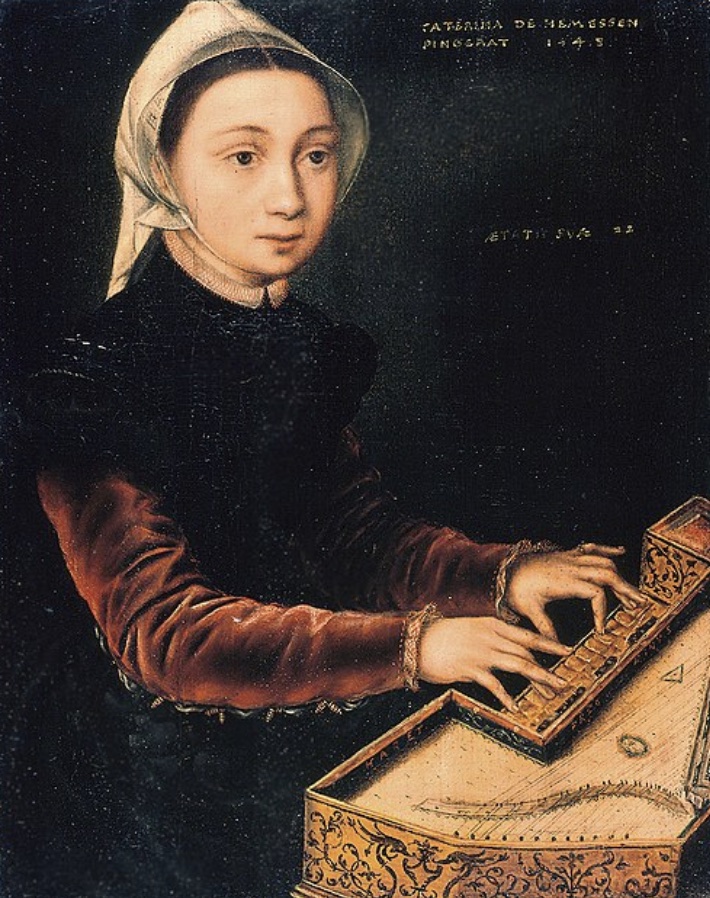 CATERINA DE HEMESSEN
PINGEBAT 1548
ÆTATIS SVÆ 22